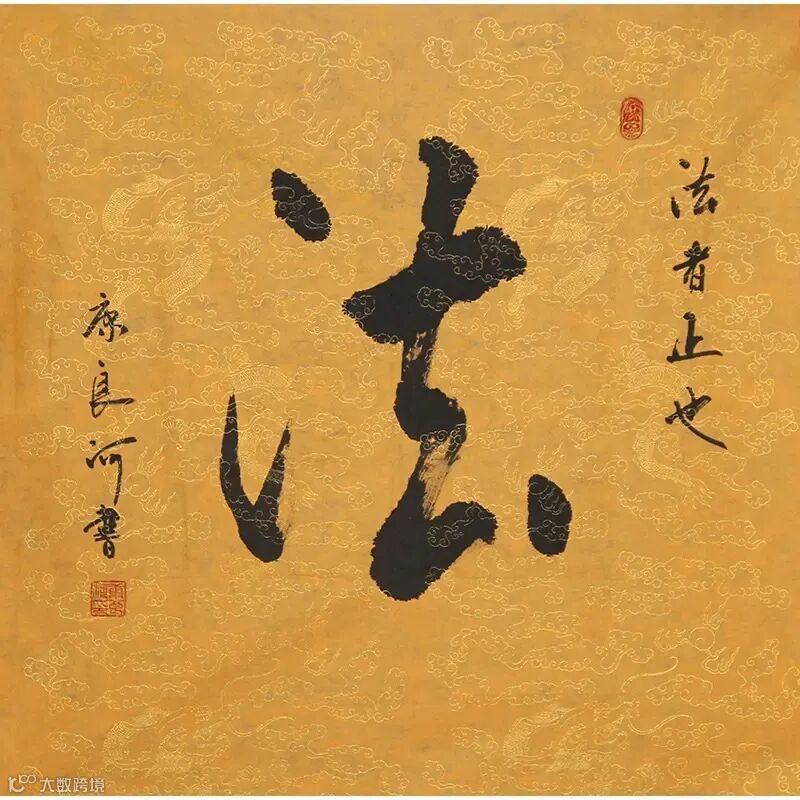 法者止也
法
康良河書
大数跨境